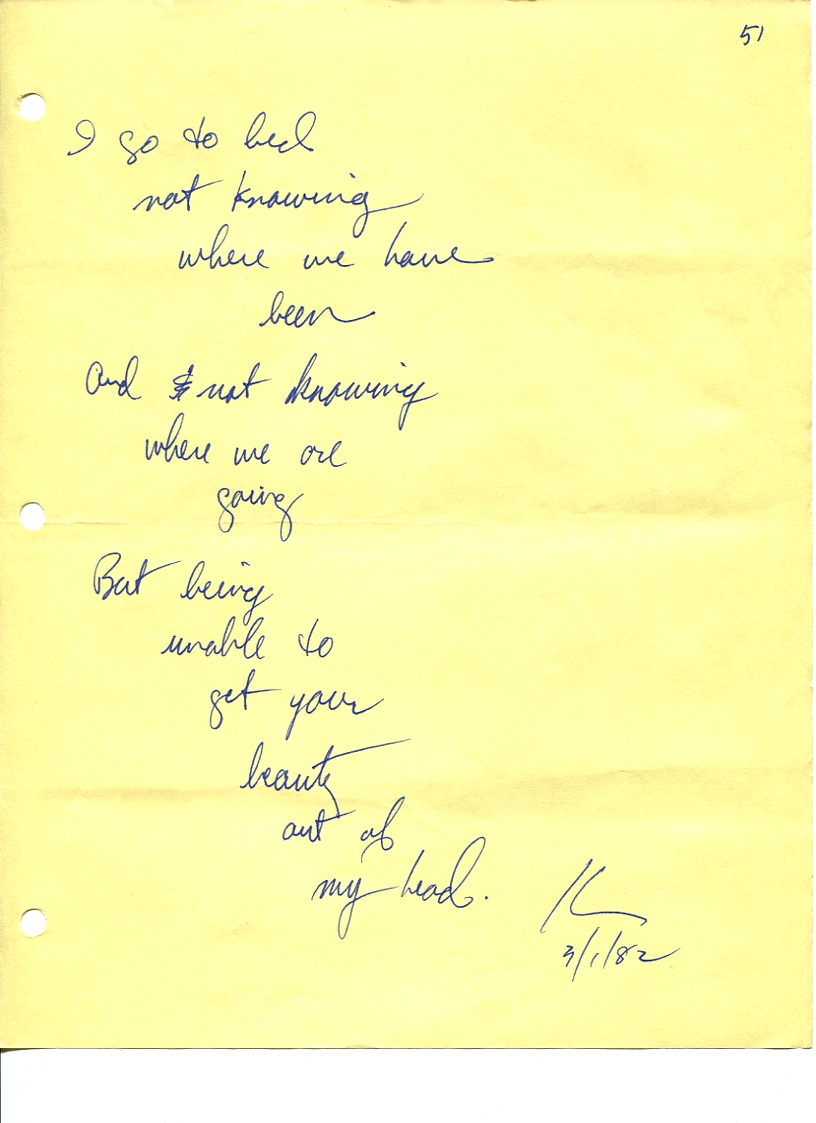 51
I go to bed
not knowing
where we have
been
And not knowing
where we are
going
But being
unable to
get your
beauty
out of
my head.
K
3/1/82